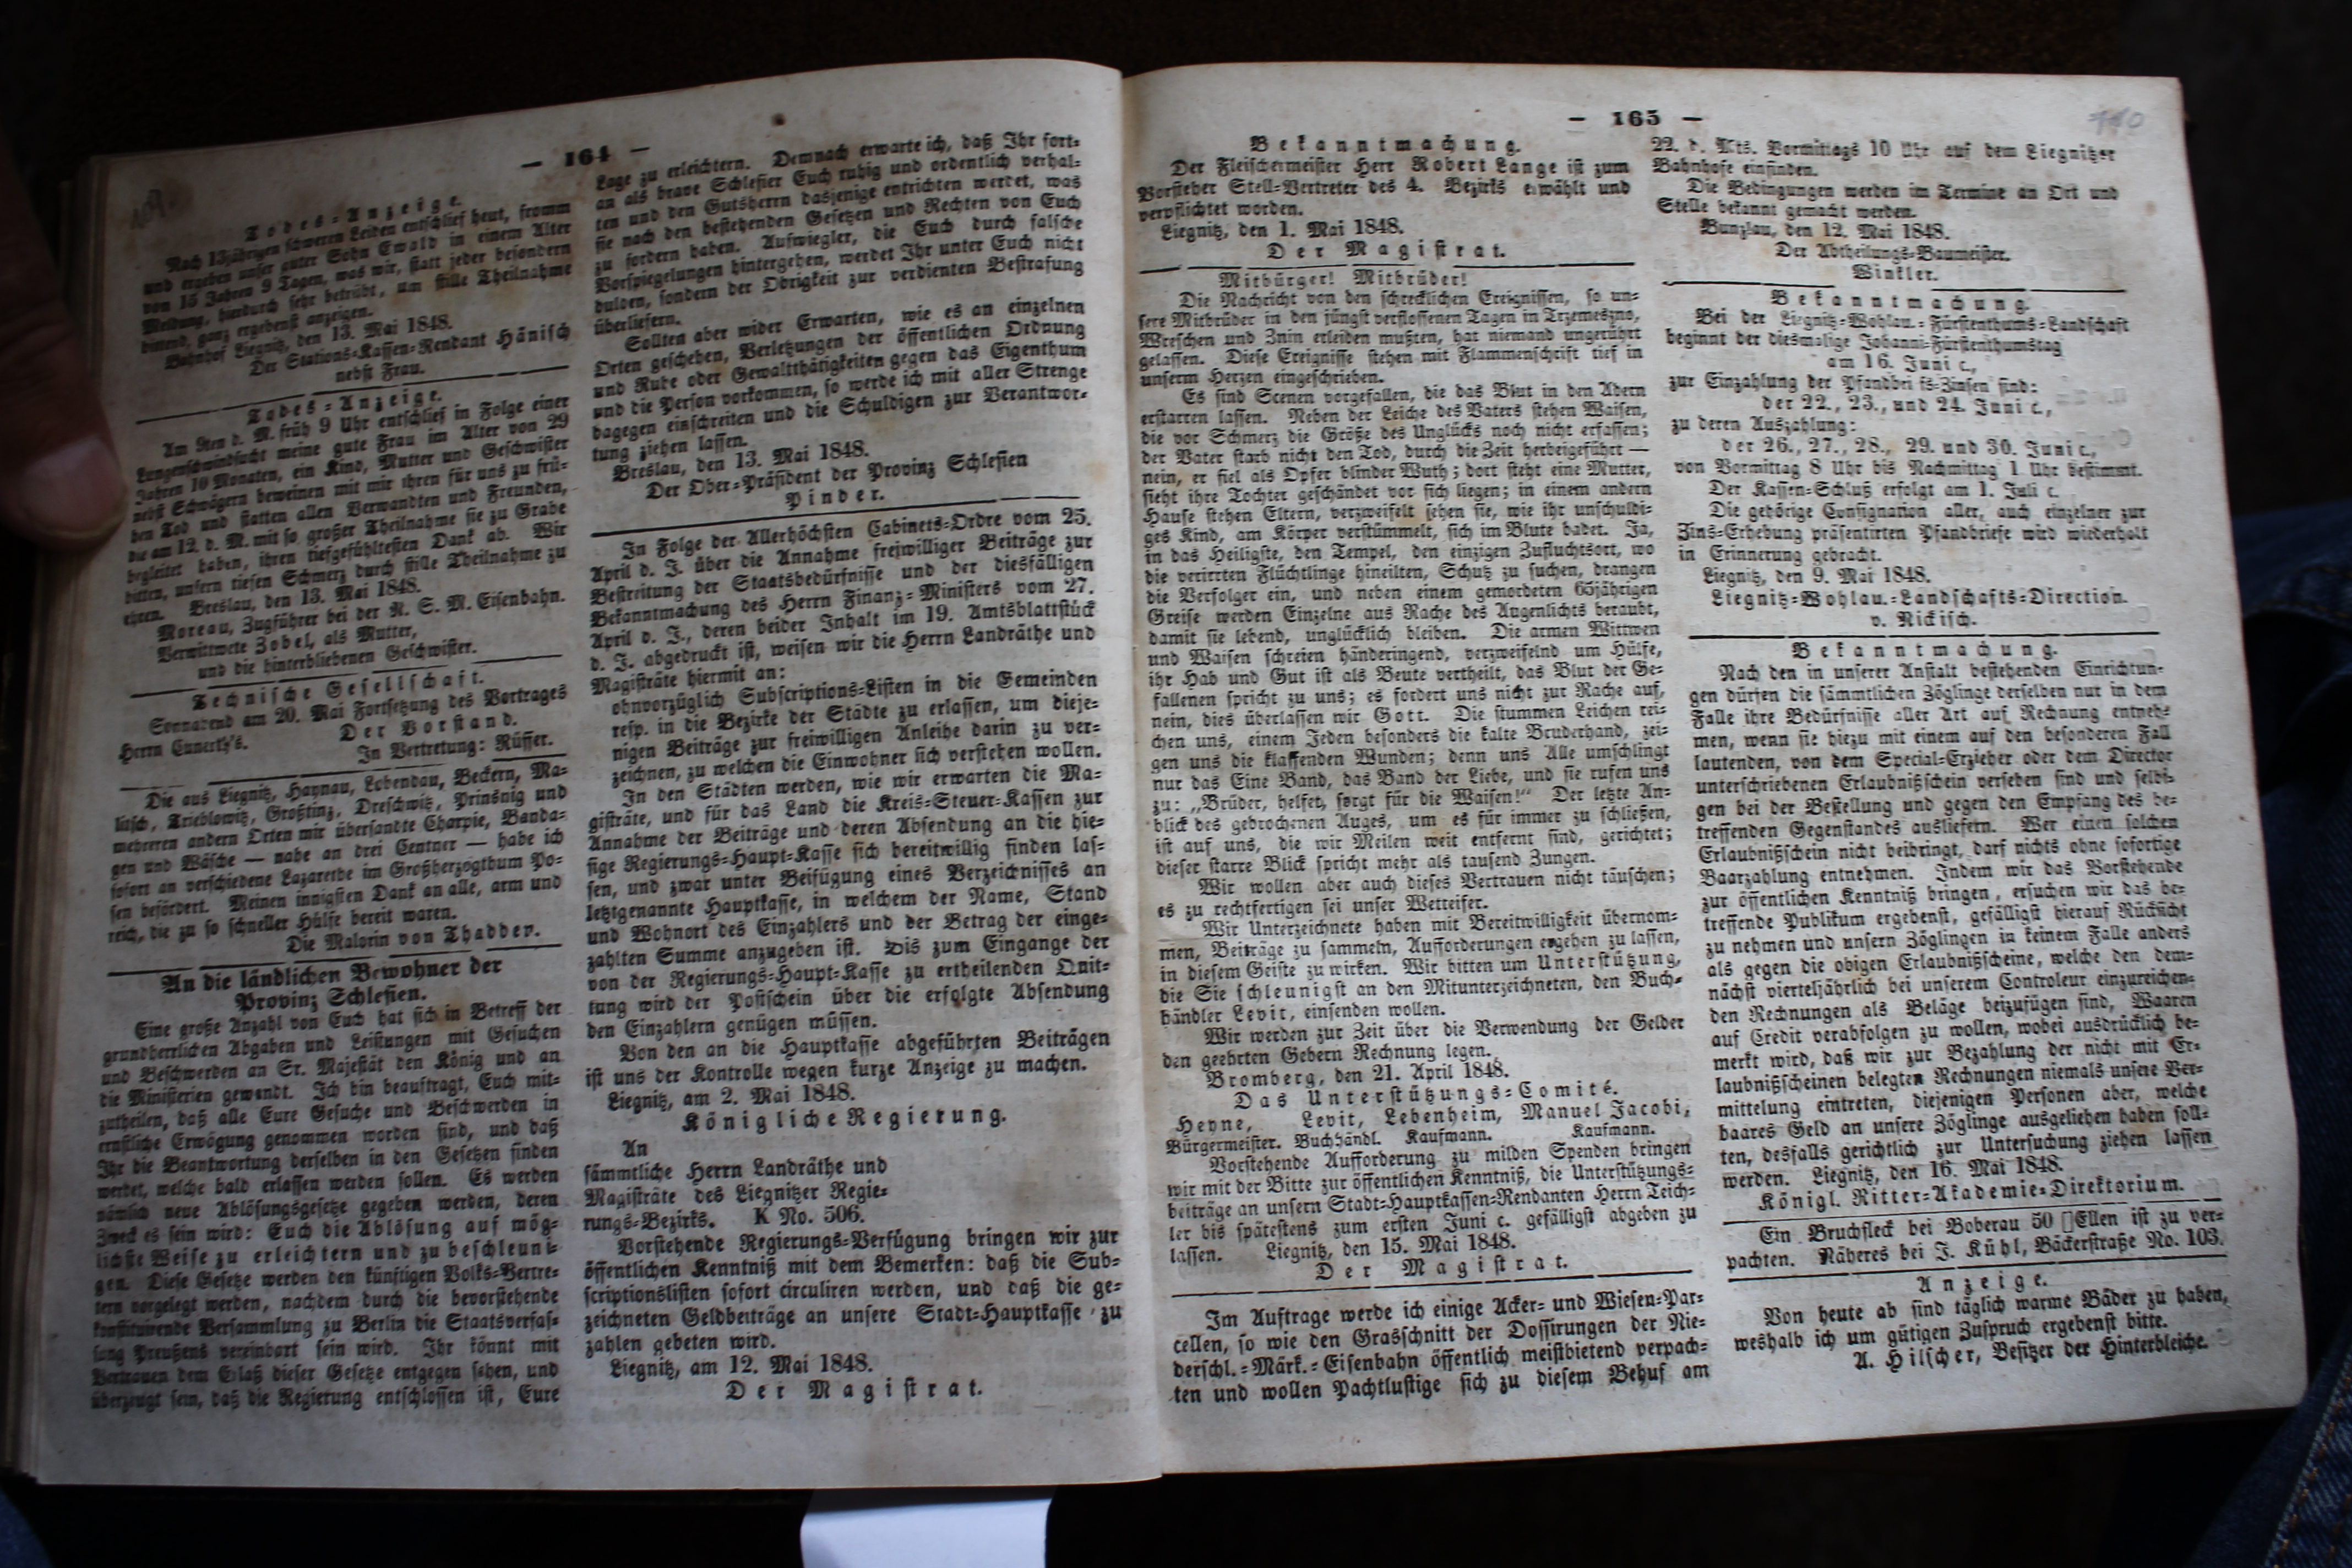 — 164 —
Todes-Anzeige.
Nach 13jährigen schweren Leiden entschlief heut, fromm
und ergeben unser guter Sohn Ewald in einem Alter
von 15 Jahren 9 Tagen, was wir, statt jeder besondern
Meldung, hierdurch sehr betrübt, um stille Theilnahme
bittend, ganz ergebenst anzeigen.
Bahnhof Liegnitz, den 13. Mai 1848.
Der Stations-Kassen-Rendant Hänisch
nebst Frau.
Todes-Anzeige.
Am 9ten d. M. früh 9 Uhr entschlief in Folge einer
Lungenschwindsucht meine gute Frau im Alter von 29
Jahren 10 Monaten, ein Kind, Mutter und Geschwister
nebst Schwägern beweinen mit mir ihren für uns zu frü-
hen Tod und statten allen Verwandten und Freunden,
die am 12. d. M. mit so großer Theilnahme sie zu Grabe
begleitet haben, ihren tiefgefühltesten Dank ab. Wir
bitten, unsern tiefen Schmerz durch stille Theilnahme zu
ehren. Breslau, den 13. Mai 1848.
Moreau, Zugführer bei der N. S. M. Eisenbahn.
Verwittwete Zobel, als Mutter,
und die hinterbliebenen Geschwister.
Technische Gesellschaft.
Sonnabend am 20. Mai Fortsetzung des Vortrages
Herrn Cunerth's. Der Vorstand.
In Vertretung: Rüffer.
Die aus Liegnitz, Haynau, Lobendau, Beckern, Ma-
litsch, Trieblowitz, Großtinz, Dreschwitz, Prinsnig und
mehreren andern Orten mir übersandte Charpie, Banda-
gen und Wäsche — nahe an drei Centner — habe ich
sofort an verschiedene Lazarethe im Großherzogthum Po-
sen befördert. Meinen innigsten Dank an alle, arm und
reich, die zu so schneller Hülfe bereit waren.
Die Majorin von Thadden.
An die ländlichen Bewohner der
Provinz Schlesien.
Eine große Anzahl von Euch hat sich in Betreff der
grundherrlichen Abgaben und Leistungen mit Gesuchen
und Beschwerden an Sr. Majestät den König und an
die Ministerien gewendt. Ich bin beauftragt, Euch mit-
zutheilen, daß alle Eure Gesuche und Beschwerden in
ernstliche Erwägung genommen worden sind, und daß
Ihr die Beantwortung derselben in den Gesetzen finden
werdet, welche bald erlassen werden sollen. Es werden
nämlich neue Ablösungsgesetze gegeben werden, deren
Zweck es sein wird: Euch die Ablösung auf mög-
lichste Weise zu erleichtern und zu beschleuni-
gen. Diese Gesetze werden den künftigen Volks-Vertre-
tern vorgelegt werden, nachdem durch die bevorstehende
konstituirende Versammlung zu Berlin die Staatsverfas-
sung Preußens vereinbart sein wird. Ihr könnt mit
Vertrauen dem Erlaß dieser Gesetze entgegen sehen, und
überzeugt sein, daß die Regierung entschlossen ist, Eure
Lage zu erleichtern. Demnach erwarte ich, daß Ihr fort-
an als brave Schlesier Euch ruhig und ordentlich verhal-
ten und den Gutsherrn dasjenige entrichten werdet, was
sie nach den bestehenden Gesetzen und Rechten von Euch
zu fordern haben. Aufwiegler, die Euch durch falsche
Vorspiegelungen hintergehen, werdet Ihr unter Euch nicht
dulden, sondern der Obrigkeit zur verdienten Bestrafung
überliefern.
Sollten aber wider Erwarten, wie es an einzelnen
Orten geschehen, Verletzungen der öffentlichen Ordnung
und Ruhe oder Gewaltthätigkeiten gegen das Eigenthum
und die Person vorkommen, so werde ich mit aller Strenge
dagegen einschreiten und die Schuldigen zur Verantwor-
tung ziehen lassen.
Breslau, den 13. Mai 1848.
Der Ober-Präsident der Provinz Schlesien
Pinder.
In Folge der Allerhöchsten Cabinets-Ordre vom 25.
April d. J. über die Annahme freiwilliger Beiträge zur
Bestreitung der Staatsbedürfnisse und der diesfälligen
Bekanntmachung des Herrn Finanz-Ministers vom 27.
April d. J., deren beider Inhalt im 19. Amtsblattstück
d. J. abgedruckt ist, weisen wir die Herrn Landräthe und
Magisträte hiermit an:
ohnvorzüglich Subscriptions-Listen in die Gemeinden
resp. in die Bezirke der Städte zu erlassen, um dieje-
nigen Beiträge zur freiwilligen Anleihe darin zu ver-
zeichnen, zu welchen die Einwohner sich verstehen wollen.
In den Städten werden, wie wir erwarten die Ma-
gisträte, und für das Land die Kreis-Steuer-Kassen zur
Annahme der Beiträge und deren Absendung an die hie-
sige Regierungs-Haupt-Kasse sich bereitwillig finden las-
sen, und zwar unter Beifügung eines Verzeichnisses an
letztgenannte Hauptkasse, in welchem der Name, Stand
und Wohnort des Einzahlers und der Betrag der einge-
zahlten Summe anzugeben ist. Bis zum Eingange der
von der Regierungs-Haupt-Kasse zu ertheilenden Quit-
tung wird der Postschein über die erfolgte Absendung
den Einzahlern genügen müssen.
Von den an die Hauptkasse abgeführten Beiträgen
ist uns der Kontrolle wegen kurze Anzeige zu machen.
Liegnitz, am 2. Mai 1848.
Königliche Regierung.
An
sämmtliche Herrn Landräthe und
Magisträte des Liegnitzer Regie-
rungs-Bezirks. K No. 506.
Vorstehende Regierungs-Verfügung bringen wir zur
öffentlichen Kenntniß mit dem Bemerken: daß die Sub-
scriptionslisten sofort circuliren werden, und daß die ge-
zeichneten Geldbeiträge an unsere Stadt-Hauptkasse zu
zahlen gebeten wird.
Liegnitz, am 12. Mai 1848.
Der Magistrat.
— 165 —
Bekanntmachung.
Der Fleischermeister Herr Robert Lange ist zum
Vorsteher Stell-Vertreter des 4. Bezirks erwählt und
verpflichtet worden.
Liegnitz, den 1. Mai 1848.
Der Magistrat.
Mitbürger! Mitbrüder!
Die Nachricht von den schrecklichen Ereignissen, so un-
sere Mitbrüder in den jüngst verflossenen Tagen in Trzemeszno,
Wreschen und Znin erleiden mußten, hat niemand ungerührt
gelassen. Diese Ereignisse stehen mit Flammenschrift tief in
unserm Herzen eingeschrieben.
Es sind Scenen vorgefallen, die das Blut in den Adern
erstarren lassen. Neben der Leiche des Vaters stehen Waisen,
die vor Schmerz die Größe des Unglücks noch nicht erfassen;
der Vater starb nicht den Tod, durch die Zeit herbeigeführt —
nein, er fiel als Opfer blinder Wuth; dort steht eine Mutter,
sieht ihre Tochter geschändet vor sich liegen; in einem andern
Hause stehen Eltern, verzweifelt sehen sie, wie ihr unschuldi-
ges Kind, am Körper verstümmelt, sich im Blute badet. Ja,
in das Heiligste, den Tempel, den einzigen Zufluchtsort, wo
die verirrten Flüchtlinge hineilten, Schutz zu suchen, drangen
die Verfolger ein, und neben einem gemordeten 65jährigen
Greise werden Einzelne aus Rache des Augenlichts beraubt,
damit sie lebend, unglücklich bleiben. Die armen Wittwen
und Waisen schreien händeringend, verzweifelnd um Hülfe,
ihr Hab und Gut ist als Beute vertheilt, das Blut der Ge-
fallenen spricht zu uns; es fordert uns nicht zur Rache auf,
nein, dies überlassen wir Gott. Die stummen Leichen rei-
chen uns, einem Jeden besonders die kalte Bruderhand, zei-
gen uns die klaffenden Wunden; denn uns Alle umschlingt
nur das Eine Band, das Band der Liebe, und sie rufen uns
zu: „Brüder, helfet, sorgt für die Waisen!“ Der letzte An-
blick des gebrochenen Auges, um es für immer zu schließen,
ist auf uns, die wir Meilen weit entfernt sind, gerichtet;
dieser starre Blick spricht mehr als tausend Zungen.
Wir wollen aber auch dieses Vertrauen nicht täuschen;
es zu rechtfertigen sei unser Wetteifer.
Wir Unterzeichnete haben mit Bereitwilligkeit übernom-
men, Beiträge zu sammeln, Aufforderungen ergehen zu lassen,
in diesem Geiste zu wirken. Wir bitten um Unterstützung,
die Sie schleunigst an den Mitunterzeichneten, den Buch-
händler Levit, einsenden wollen.
Wir werden zur Zeit über die Verwendung der Gelder
den geehrten Gebern Rechnung legen.
Bromberg, den 21. April 1848.
Das Unterstützungs-Comité.
Heyne, Levit, Lebenheim, Manuel Jacobi,
Bürgermeister. Buchhändl. Kaufmann. Kaufmann.
Vorstehende Aufforderung zu milden Spenden bringen
wir mit der Bitte zur öffentlichen Kenntniß, die Unterstützungs-
beiträge an unsern Stadt-Hauptkassen-Rendanten Herrn Teich-
ler bis spätestens zum ersten Juni c. gefälligst abgeben zu
lassen. Liegnitz, den 15. Mai 1848.
Der Magistrat.
Im Auftrage werde ich einige Acker- und Wiesen-Par-
cellen, so wie den Grasschnitt der Dossirungen der Nie-
derschl.-Märk.-Eisenbahn öffentlich meistbietend verpach-
ten und wollen Pachtlustige sich zu diesem Behuf am
22. d. Mts. Vormittags 10 Uhr auf dem Liegnitzer
Bahnhofe einfinden.
Die Bedingungen werden im Termine an Ort und
Stelle bekannt gemacht werden.
Bunzlau, den 12. Mai 1848.
Der Abtheilungs-Baumeister.
Winkler.
Bekanntmachung.
Bei der Liegnitz-Wohlau.-Fürstenthums-Landschaft
beginnt der diesmalige Johanni-Fürstenthumstag
am 16. Juni c.,
zur Einzahlung der Pfandbriefs-Zinsen sind:
der 22., 23., und 24. Juni c.,
zu deren Auszahlung:
der 26., 27., 28., 29. und 30. Juni c.,
von Vormittag 8 Uhr bis Nachmittag 1 Uhr bestimmt.
Der Kassen-Schluß erfolgt am 1. Juli c.
Die gehörige Consignation aller, auch einzelner zur
Zins-Erhebung präsentirten Pfandbriefe wird wiederholt
in Erinnerung gebracht.
Liegnitz, den 9. Mai 1848.
Liegnitz-Wohlau.-Landschafts-Direction.
v. Nickisch.
Bekanntmachung.
Nach den in unserer Anstalt bestehenden Einrichtun-
gen dürfen die sämmtlichen Zöglinge derselben nur in dem
Falle ihre Bedürfnisse aller Art auf Rechnung entneh-
men, wenn sie hiezu mit einem auf den besonderen Fall
lautenden, von dem Special-Erzieher oder dem Director
unterschriebenen Erlaubnißschein versehen sind und selbi-
gen bei der Bestellung und gegen den Empfang des be-
treffenden Gegenstandes ausliefern. Wer einen solchen
Erlaubnißschein nicht beibringt, darf nichts ohne sofortige
Baarzahlung entnehmen. Indem wir das Vorstehende
zur öffentlichen Kenntniß bringen, ersuchen wir das be-
treffende Publikum ergebenst, gefälligst hierauf Rücksicht
zu nehmen und unsern Zöglingen in keinem Falle anders
als gegen die obigen Erlaubnißscheine, welche den dem-
nächst vierteljährlich bei unserem Controleur einzureichen-
den Rechnungen als Beläge beizufügen sind, Waaren
auf Credit verabfolgen zu wollen, wobei ausdrücklich be-
merkt wird, daß wir zur Bezahlung der nicht mit Er-
laubnißscheinen belegten Rechnungen niemals unsere Ver-
mittelung eintreten, diejenigen Personen aber, welche
baares Geld an unsere Zöglinge ausgeliehen haben soll-
ten, desfalls gerichtlich zur Untersuchung ziehen lassen
werden. Liegnitz, den 16. Mai 1848.
Königl. Ritter-Akademie-Direktorium.
Ein Bruchfleck bei Boberau 50 □Ellen ist zu ver-
pachten. Näheres bei J. Kühl, Bäckerstraße No. 103.
Anzeige.
Von heute ab sind täglich warme Bäder zu haben,
weshalb ich um gütigen Zuspruch ergebenst bitte.
A. Hilscher, Besitzer der Hinterbleiche.